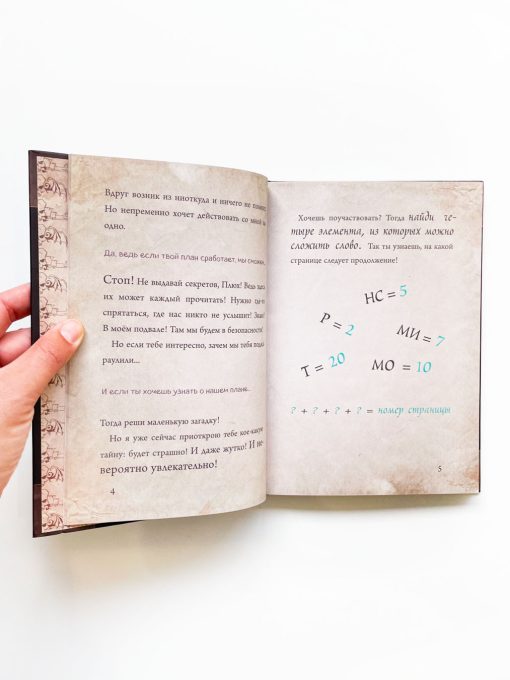 Вдруг возник из ниоткуда и ничего не
Но непременно хочет действовать со мной за
одно.
Да, ведь если твой план сработает, мы сможем
Стоп! Не выдавай секретов, Плюх! Ведь здесь
их может каждый прочитать! Нужно где-то
спрятаться, где нас никто не услышит! Знаю!
В моём подвале! Там мы будем в безопасности!
Но если тебе интересно, зачем мы тебя
раулили...
И если ты хочешь узнать о нашем плане...
Тогда реши маленькую загадку!
Но я уже сейчас приоткрою тебе кое-какую
тайну: будет страшно! И даже жутко! И не-
вероятно увлекательно!
4
Хочешь поучаствовать? Тогда найди че-
тыре элемента, из которых можно
сложить слово. Так ты узнаешь, на какой
странице следует продолжение!
НС = 5
Р = 2
МИ = 7
Т = 20
МО = 10
? + ? + ? + ? = номер страницы
5